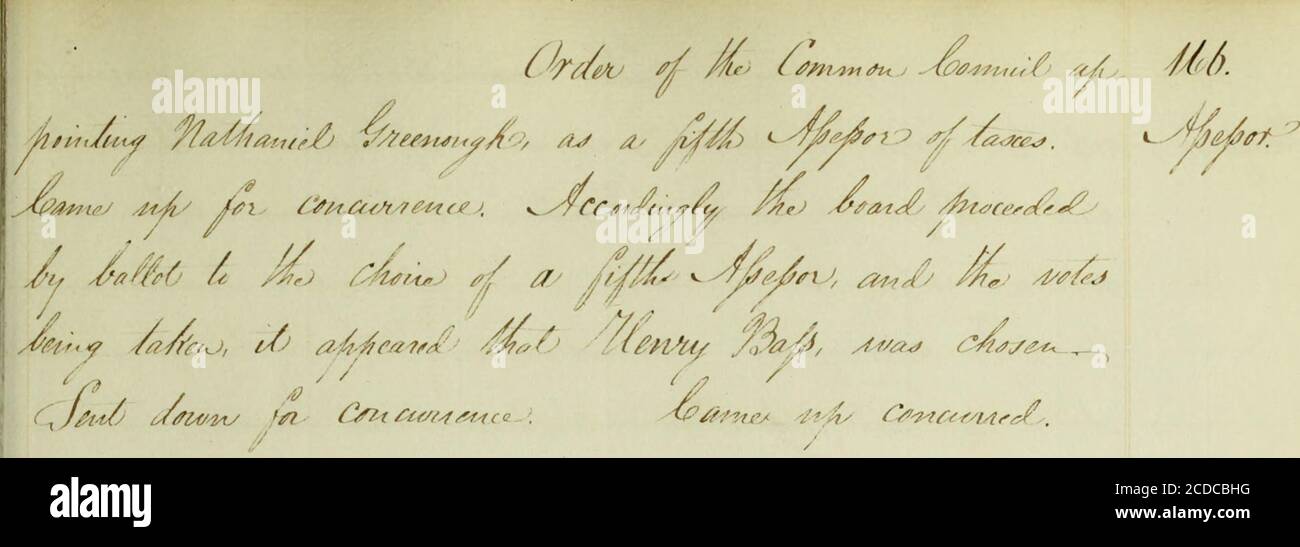 Order of the Common Council ap 166.
pointing Nathaniel Greenough, as a fifth Aſseſsor of taxes. Aſseſsor.
Came up for concurrence. Accordingly the board proceeded
by ballot to the choice of a fifth Aſseſsor, and the votes
being taken, it appeared that Henry Baſs, was chosen—
Sent down for concurrence. Came up concurred.
alamy
Image ID: 2CDCBHG
www.alamy.com